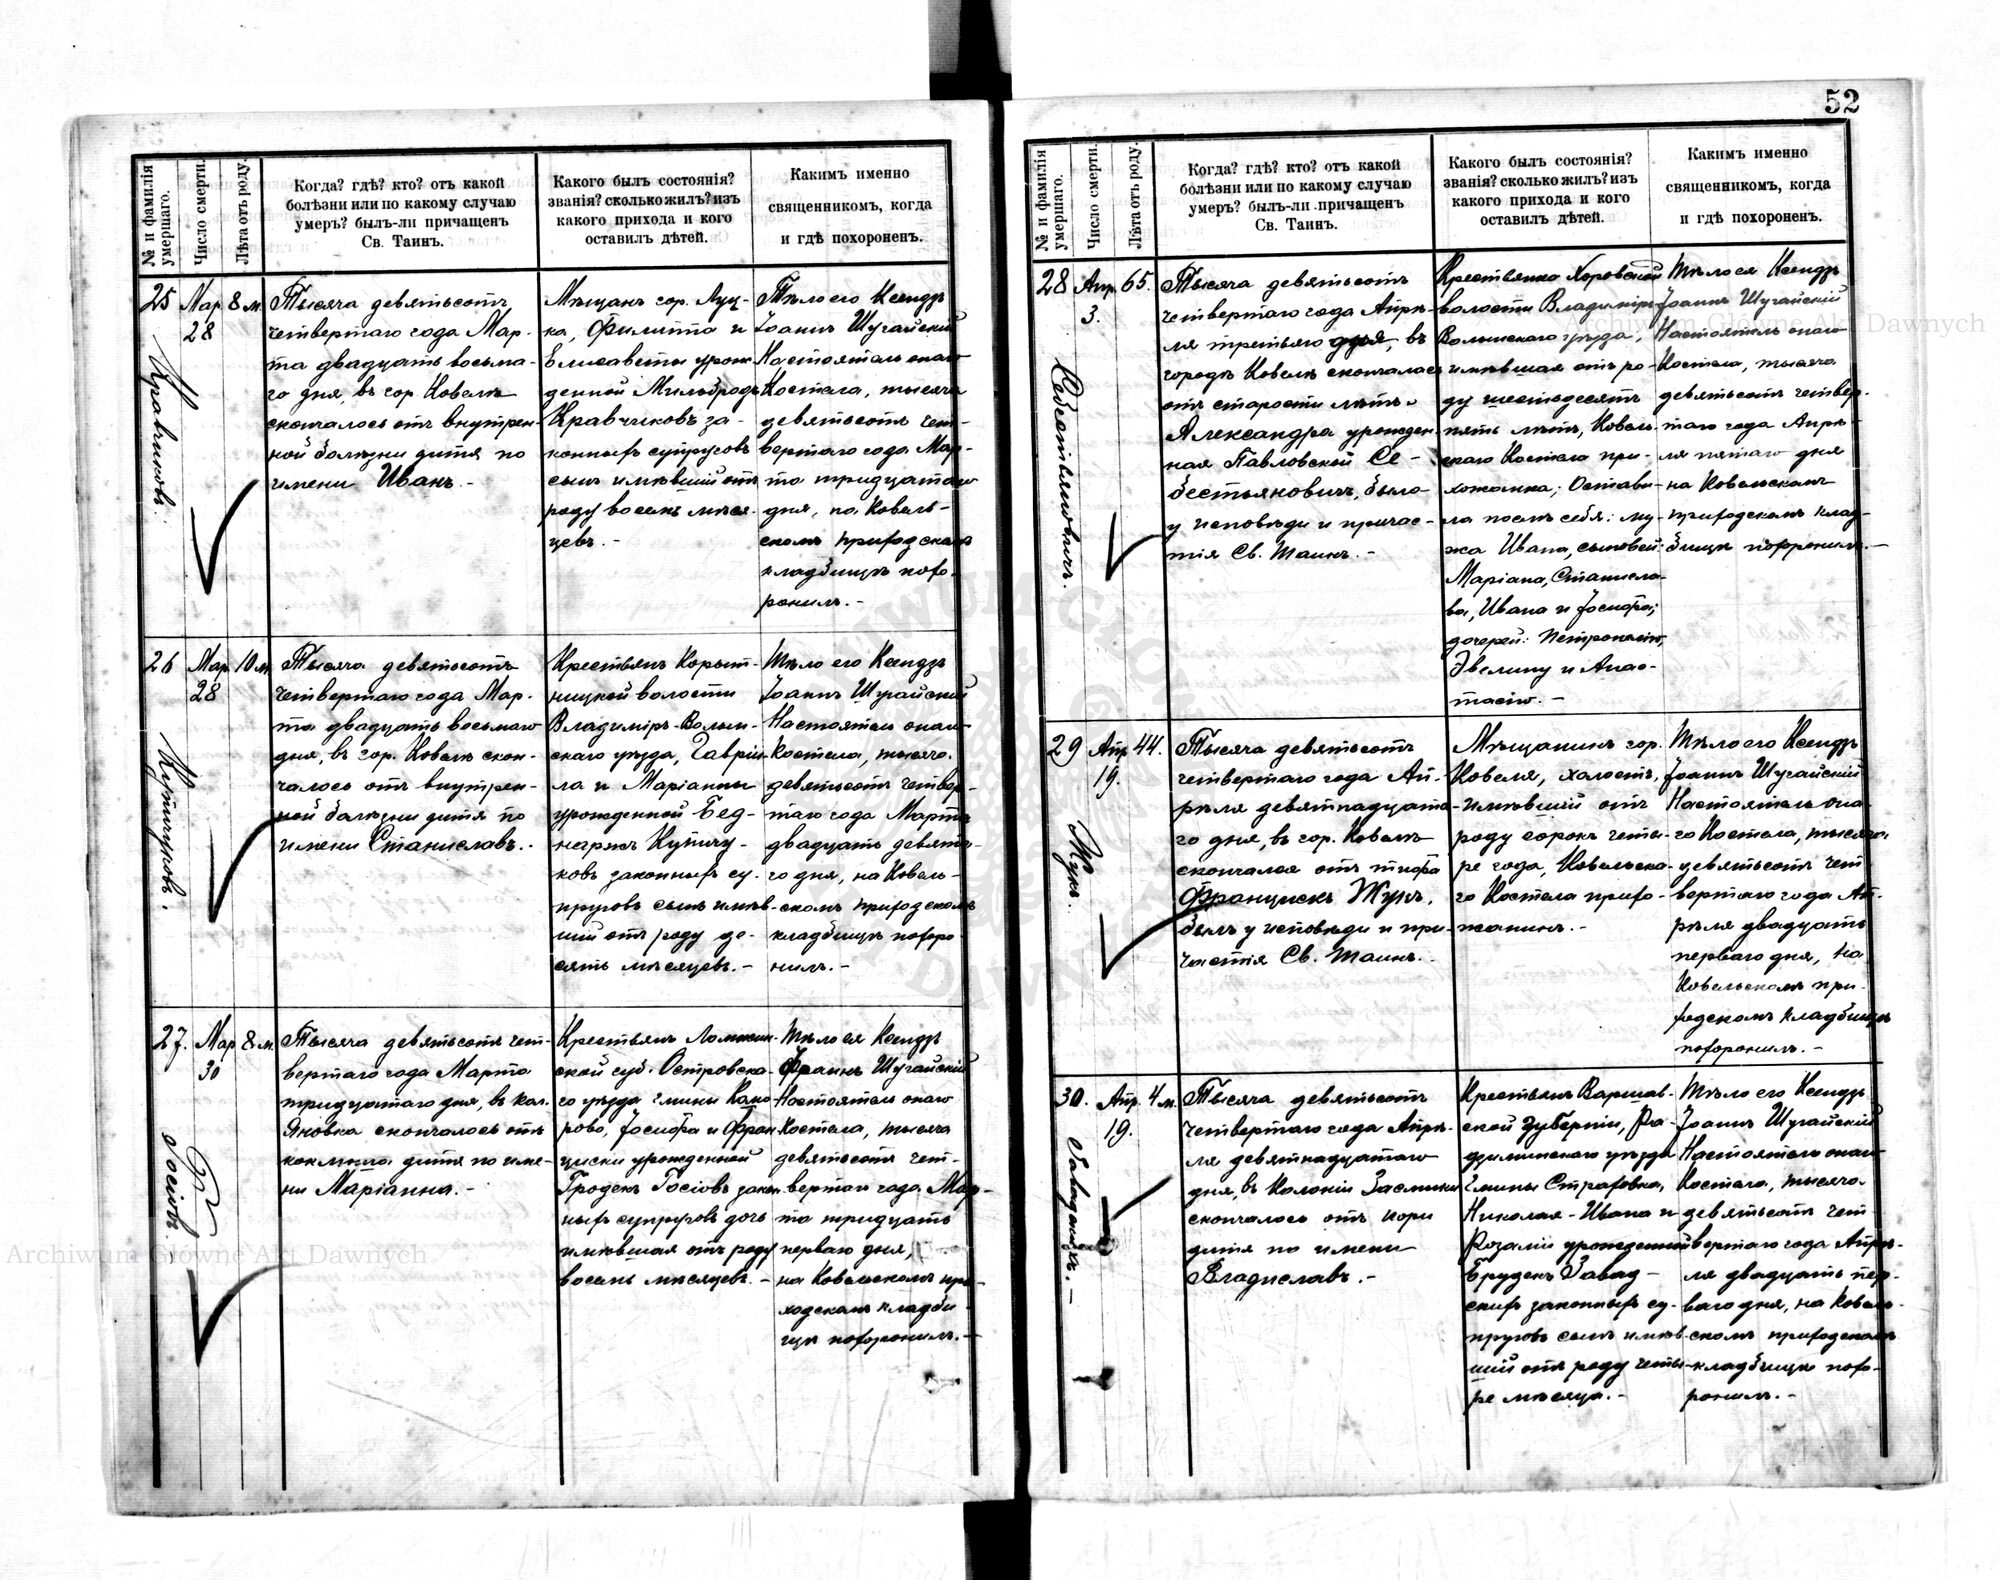 52
№ и фамилія умершаго.
Число смерти.
Лѣта отъ роду.
Когда? гдѣ? кто? отъ какой
болѣзни или по какому случаю
умеръ? былъ-ли причащенъ
Св. Таинъ.
Какого былъ состоянія?
званія? сколько жилъ? изъ
какого прихода и кого
оставилъ дѣтей.
Какимъ именно
священникомъ, когда
и гдѣ похороненъ.
25
Мар. 28
8 м.
Кравчиковъ.
Тысяча девятьсотъ
четвертаго года Мар-
та двадцать восьма-
го дня, въ гор. Ковелѣ
скончалось отъ внутрен-
ной болѣзни дитя по
имени Иванъ.-
Мѣщанъ гор. Луц-
ка, Филиппа и
Елисаветы урож-
денной Мильбродъ
Кравчиковъ за-
конныхъ супруговъ
сынъ имѣвшій отъ
роду восемь мѣся-
цевъ.-
Тѣло его Ксендзъ
Іоаннъ Шугайскій
Настоятель онаго
Костела, тысяча
девятьсотъ чет-
вертаго года Мар-
та тридцатаго
дня, на Ковель-
скомъ приходскомъ
кладбищѣ похо-
ронилъ.-
26
Мар. 28
10 м.
Купчуровъ.
Тысяча девятьсотъ
четвертаго года Мар-
та двадцать восьмаго
дня, въ гор. Ковелѣ скон-
чалось отъ внутрен-
ной болѣзни дитя по
имени Станиславъ.-
Крестьянъ Корыт-
ницкой волости
Владиміръ-Волын-
скаго уѣзда, Гаврiи-
ла и Маріанны
урожденной Бед-
нарж Купчу-
ковъ законныхъ су-
пруговъ сынъ имѣв-
шій отъ роду де-
сять мѣсяцевъ.-
Тѣло его Ксендзъ
Іоаннъ Шугайскій
Настоятель онаго
Костела, тысяча
девятьсотъ четвер-
таго года Марта
двадцать девята-
го дня, на Ковель-
скомъ приходскомъ
кладбищѣ похоро-
нилъ.-
27.
Мар 30
8 м.
Госіовъ.
Тысяча девятьсотъ чет-
вертаго года Марта
тридцатаго дня, въ кол.
Яновка скончалось отъ
коклюша дитя по име-
ни Маріанна.-
Крестьянъ Ломжин-
ской губ. Островска-
го уѣзда гмины Камо-
рово, Іосифа и Фран-
циски урожденной
Гродекъ Госіовъ закон-
ныхъ супруговъ дочь
имѣвшая отъ роду
восемь мѣсяцевъ.-
Тѣло ея Ксендзъ
Іоаннъ Шугайскій
Настоятель онаго
Костела, тысяча
девятьсотъ чет-
вертаго года Мар-
та тридцать
перваго дня,
на Ковельскомъ при-
ходскомъ кладби-
щѣ похоронилъ.-
№ и фамилія умершаго.
Число смерти.
Лѣта отъ роду.
Когда? гдѣ? кто? отъ какой
болѣзни или по какому случаю
умеръ? былъ-ли причащенъ
Св. Таинъ.
Какого былъ состоянія?
званія? сколько жилъ? изъ
какого прихода и кого
оставилъ дѣтей.
Какимъ именно
священникомъ, когда
и гдѣ похороненъ.
28
Апр. 3.
65.
Себестьяновичъ.
Тысяча девятьсотъ
четвертаго года Апрѣ-
ля третьяго дня, въ
городѣ Ковелѣ скончалась
отъ старости лѣтъ
Александра урожден-
ная Павловской Се-
бестьяновичъ, была
у исповѣди и причас-
тія Св. Таинъ.-
Крестьянка Хоровской
волости Владиміръ-
Волынскаго уѣзда,
имѣвшая отъ ро-
ду шестьдесятъ
пять лѣтъ, Ковель-
скаго Костела при-
хожанка; Остави-
ла послѣ себя: му-
жа Ивана, сыновей:
Маріана, Станисла-
ва, Ивана и Іосифа;
дочерей: Петронелію,
Эвелину и Анас-
тасію.-
Тѣло ея Ксендзъ
Іоаннъ Шугайскій
Настоятель онаго
Костела, тысяча
девятьсотъ четвер-
таго года Апрѣ-
ля пятаго дня
на Ковельскомъ
приходскомъ клад-
бищѣ похоронилъ.-
29
Апр 19.
44.
Жукъ.
Тысяча девятьсотъ
четвертаго года Ап-
рѣля девятнадцата-
го дня, въ гор. Ковелѣ
скончался отъ тифа
Францискъ Жукъ,
былъ у исповѣди и при-
частія Св. Таинъ.-
Мѣщанинъ гор.
Ковеля, холостъ,
имѣвшій отъ
роду сорокъ четы-
ре года, Ковельска-
го Костела прихо-
жанинъ.-
Тѣло его Ксендзъ
Іоаннъ Шугайскій
Настоятель она-
го Костела, тысяча
девятьсотъ чет-
вертаго года Ап-
рѣля двадцать
перваго дня, на
Ковельскомъ при-
ходскомъ кладбищѣ
похоронилъ.-
30.
Апр. 19.
4 м.
Завадскихъ.-
Тысяча девятьсотъ
четвертаго года Апрѣ-
ля девятнадцатаго
дня, въ Колоніи Засмыки
скончалось отъ кори
дитя по имени
Владиславъ.-
Крестьянъ Варшав-
ской губерніи, Ра-
дзиминскаго уѣзда
Гмины Страховка,
Николая-Ивана и
Розаліи урожденной
Брудекъ Завад-
скихъ законныхъ су-
пруговъ сынъ имѣв-
шій отъ роду четы-
ре мѣсяца.-
Тѣло его Ксендзъ
Іоаннъ Шугайскій
Настоятель онаго
Костела, тысяча
девятьсотъ чет-
вертаго года Апрѣ-
ля двадцать пер-
ваго дня, на Ковель-
скомъ приходскомъ
кладбищѣ похо-
ронилъ.-
Archiwum Główne Akt Dawnych
Archiwum Główne Akt Dawnych